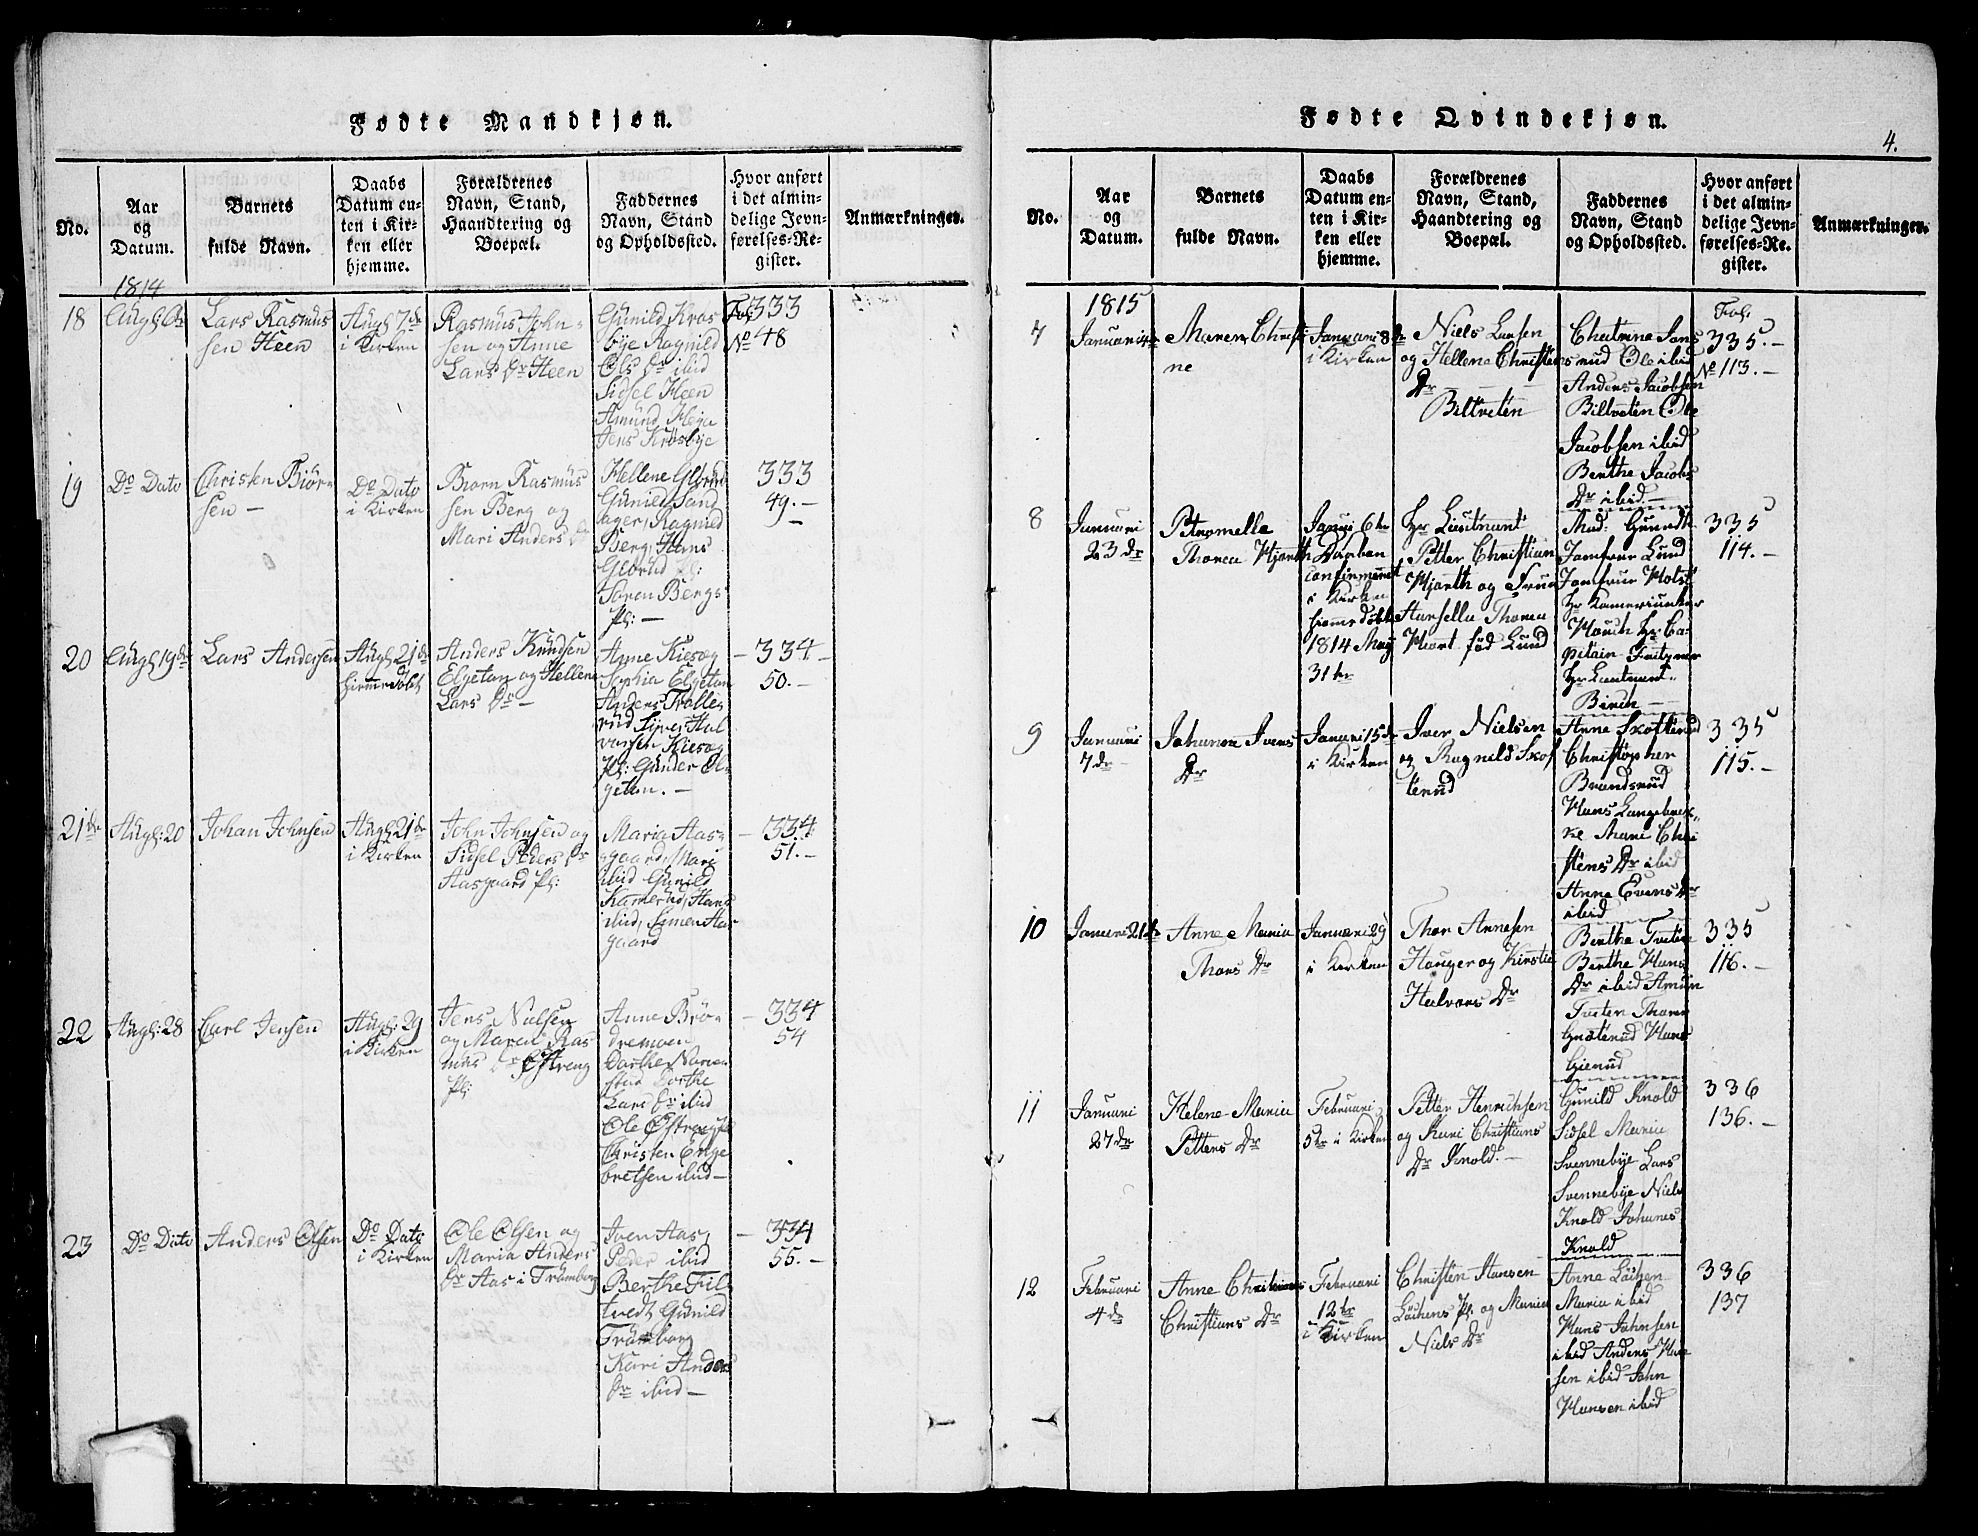 Fødte Mandkjøn.
No.
Aar
og
Datum.
Barnets
fulde Navn.
Daabs
Datum en-
ten i Kir-
ken eller
hjemme.
Forældrenes
Navn, Stand,
Haandtering og
Boepæl.
Faddernes
Navn, Stand
og Opholdssted.
Hvor anført
i det almin-
delige Jevn-
førelses-Re-
gister.
Anmærkninger.
1814
18
Lars Rasmus
sen Heen
Augl 7de
i Kirken
Rasmus John-
sen og Anne
Lars Dr Heen
Gunild Kros
bye Ragnild
Ols Dr ibid
Sidsel Heen
Amund
Jens Krosbye
Fol: 333
No 48
19
Do Dato
Christen Biørn
sen
Do Dato
i Kirken
Biorn Rasmus
sen Berg og
Mari Anders Dr
Hellene Glorud
Gunild Sand
ager, Ragnild
Berg, Hans
Glorud Pl:
Soren Bergs
Pl:
333
49.
20
Augl 19de
Lars Andersen
Augl 21de
hiemedøbt
Anders Knudsen
Elgetan og Hellene
Lars Dr
Anne Kiesog
Sophia Elgetan
Anders Trolle
rud Siver Hal
vorsen Kiesog
Pl: Gunder El-
getan.
334
50.
21de
Augl: 20
Johan Johnsen
Augl 21de
i Kirken
John Johnsen og
Sidsel Peders Dr
Aasgaard Pl:
Maria Aas-
gaard, Mari
ibid Gunild
Kamerud, Hans
ibid, Simen Aas
gaard
334
51.
22
Augl: 28
Carl Jensen
Augl: 29
i Kirken
Jens Nielsen
og Maren Ras
mus Dr Østreng
Pl:
Anne Brø-
dremoen
Dorthe
Dorthe
Lars Dr ibid
Ole Østreng
Christen Enge
bretsen ibid
334
54
23
Do Dato
Anders Olsen
Do Dato
i Kirken
Ole Olsen og
Maria Anders
Dr Aas i Tramborg
Iver Aas
Peder ibid
Berthe Fil
tvedt Gunild
Tramborg
Kari Anders
Dr ibid
334
55.
Fødte Qvindekjøn.
4.
No.
Aar
og
Datum.
Barnets
fulde Navn.
Daabs
Datum en-
ten i Kir-
ken eller
hjemme.
Forældrenes
Navn, Stand,
Haandtering og
Boepæl.
Faddernes
Navn, Stand
og Opholdssted.
Hvor anført
i det almin-
delige Jevn-
førelses-Re-
gister.
Anmærkninger.
1815
7
Januari 4de
Maren Christi
ne
Januari 8de
i Kirken
Niels Larsen
og Hellena Christens
Dr
Biltveten
rud Ole ibid
Anders Jacobsen
Biltveten Ole
Jacobsen ibid
Berthe Jacobs
Dr ibid.
Fol.
335.
No 113.
8
Januari
23de
Petronelle
Thorea Hjorth
Januari 6te
Daaben
confirmeret
i Kirken
hiemedøbt
1814 May
31te
Hr Lieutnant
Petter Christian
Hjorth og Frue
Thorea
Hiort fød Lund
Mad: Grundt
Jomfrue Lund
Jomfrue Holst
Hr Kameriunker
Hr Ca-
pitain Fritzner
Hr Lieutnant
Birch
335
114.
9
Januari
7de
Johanne Ivers
Dr
Januari 15de
i Kirken
Iver Nielsen
og Ragnild Skof
terud
Anne Skofterud
Christopher
Brandsrud
Hans Langebæk
ke Mari Chri
stens Dr ibid
Anne Evens Dr
ibid
335
115.
10
Januari 21de
Anne Maria
Thors Dr
Januari 29
i Kirken
Thor Annesen
Hauger og Kirstie
Halvors Dr
Berthe Tveten
Berthe Hans
Dr ibid Amun
Tveten Thore
Hans
Gierud
335
116.
11
Januari
27de
Helene Maria
Petters Dr
Februari
5te i Kirken
Petter Henrichsen
og Kari Christians
Dr Knold.
Gunild Knold
Sidsel Maria
Svennebye Lars
Svennebye Niels
Knold Johanes
Knold
336
136.
12
Februari
4de
Anne Christiane
Christians Dr
Februari
12te
i Kirken
Christen Hansen
Løchens Pl. og Maria
Niels Dr
Anne Løchen
Maria ibid
Hans Johnsen
ibid Anders Han
sen ibid John
Hansen ibid
336
137